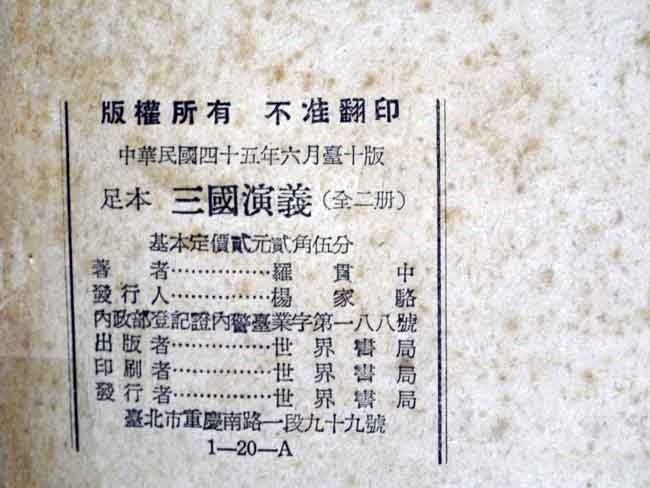 版權所有 不准翻印
中華民國四十五年六月臺十版
足本 三國演義(全二册)
基本定價貳元貳角伍分
著者……………羅貫中
發行人……………楊家駱
內政部登記證內警臺業字第一八八號
出版者……………世界書局
印刷者……………世界書局
發行者……………世界書局
臺北市重慶南路一段九十九號
1—20—A